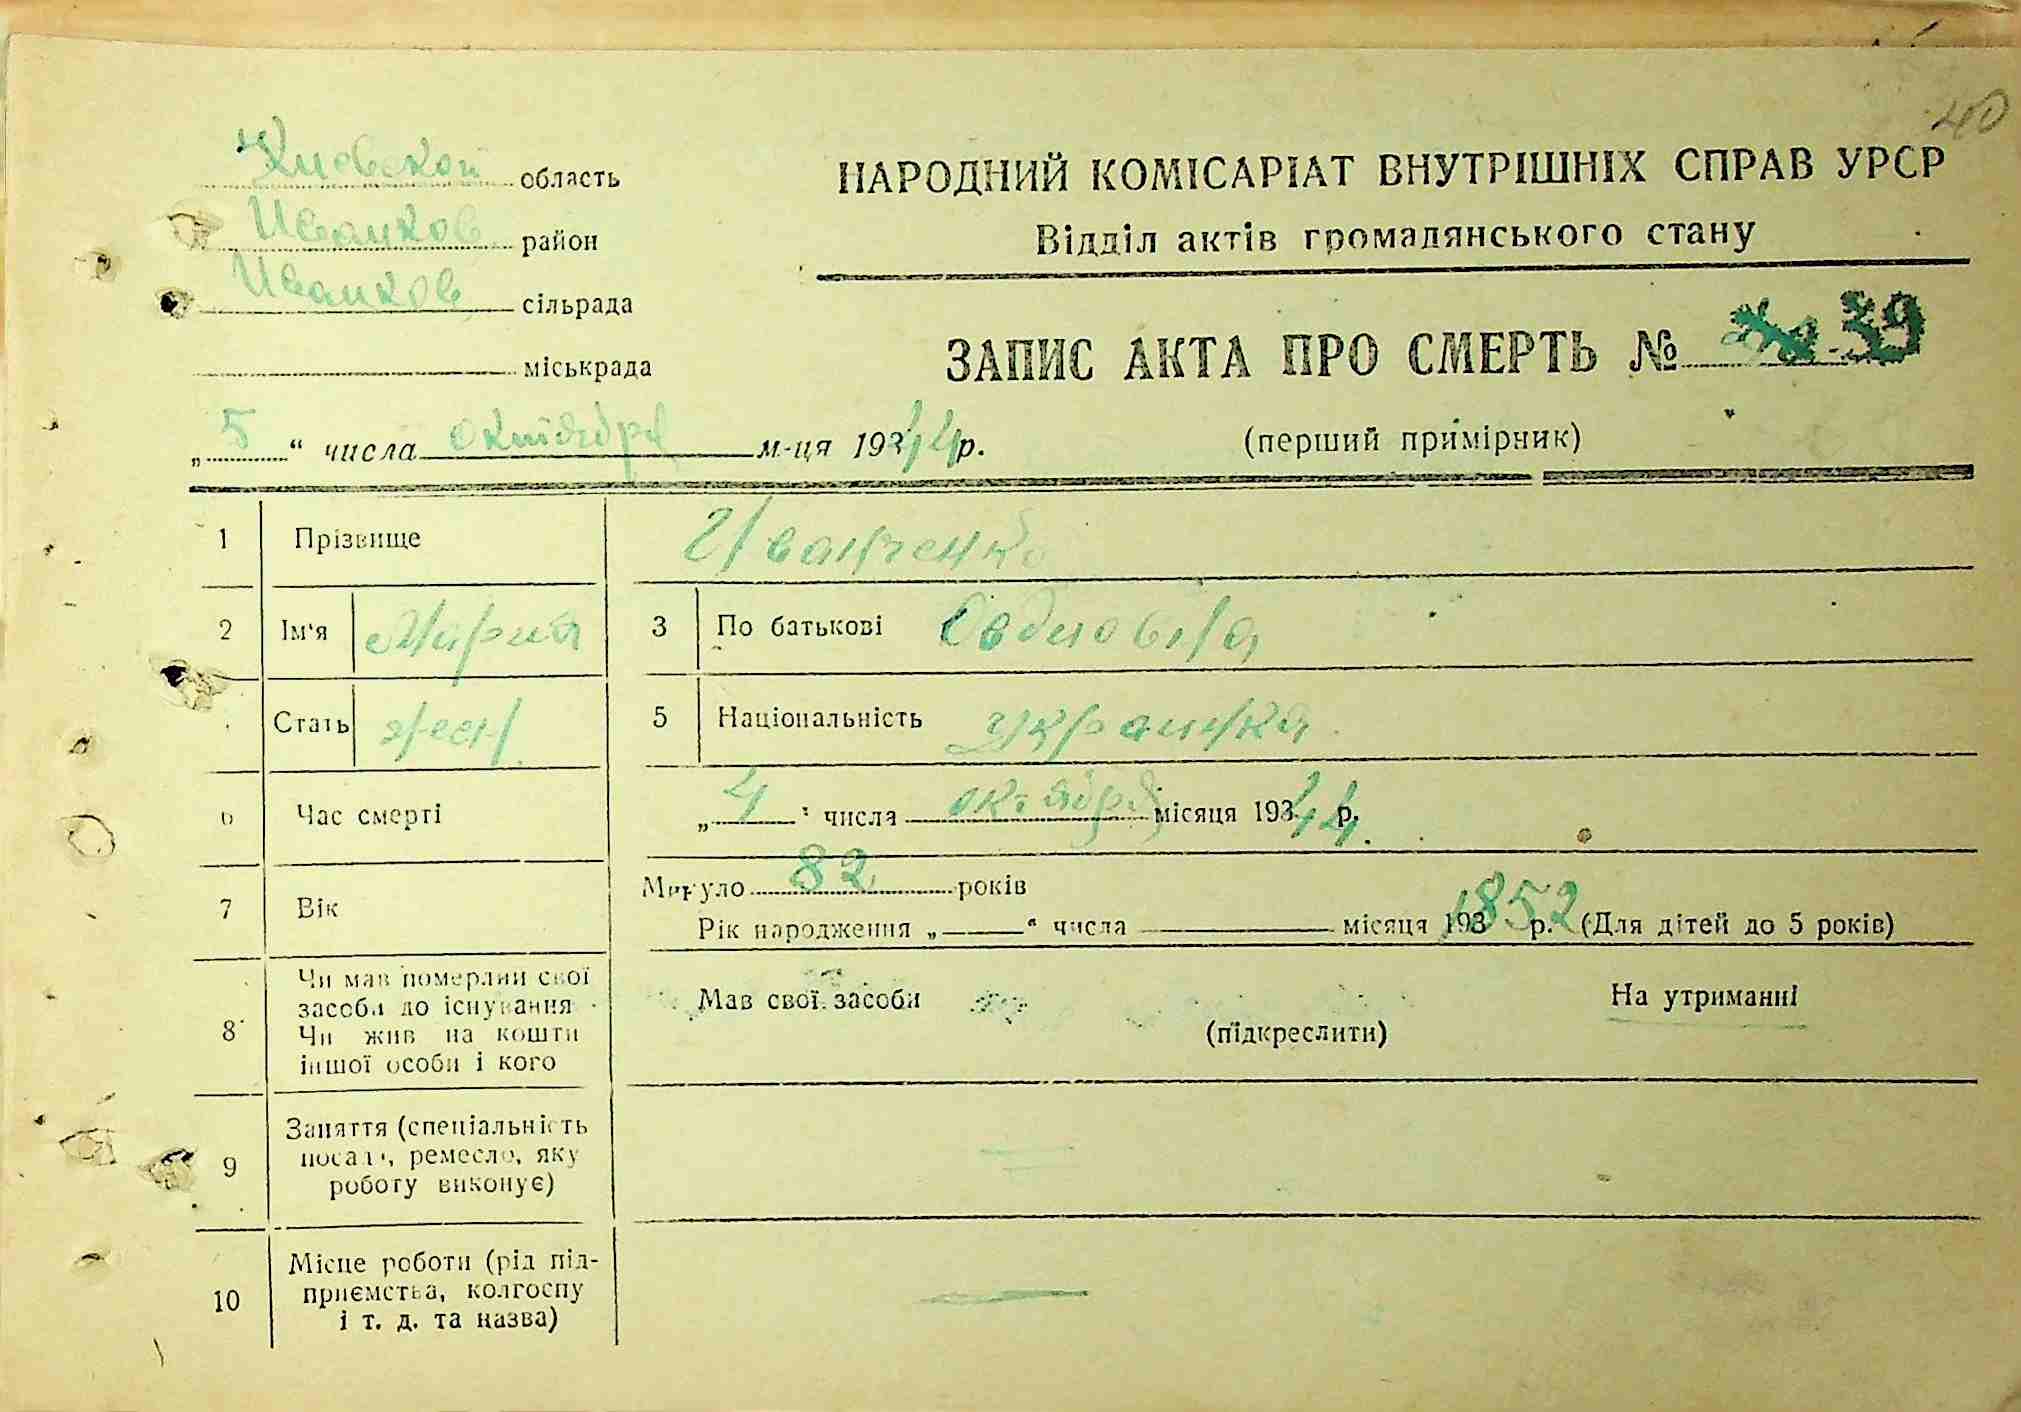 40
Киевской область
Иванков район
Иванков сільрада
міськрада
НАРОДНИЙ КОМІСАРІАТ ВНУТРІШНІХ СПРАВ УРСР
Відділ актів громадянського стану
ЗАПИС АКТА ПРО СМЕРТЬ № 39
(перший примірник)
„5“ числа октября м-ця 1944 р.
1 Прізвище Иванченко
2 Ім'я Мария 3 По батькові
Стать жен. 5 Національність украинка
6 Час смерті „4“ числа октября місяця 1944 р.
7 Вік Минуло 82 років
Рік народження „ “ числа місяця 193 1852 р. (Для дітей до 5 років)
8 Чи мав померлий свої
засоби до існування
Чи жив на кошти
іншої особи і кого
Мав свої засоби На утриманні
(підкреслити)
9 Заняття (спеціальність
посада, ремесло, яку
роботу виконує)
10 Місце роботи (рід під-
приємства, колгоспу
і т. д. та назва)